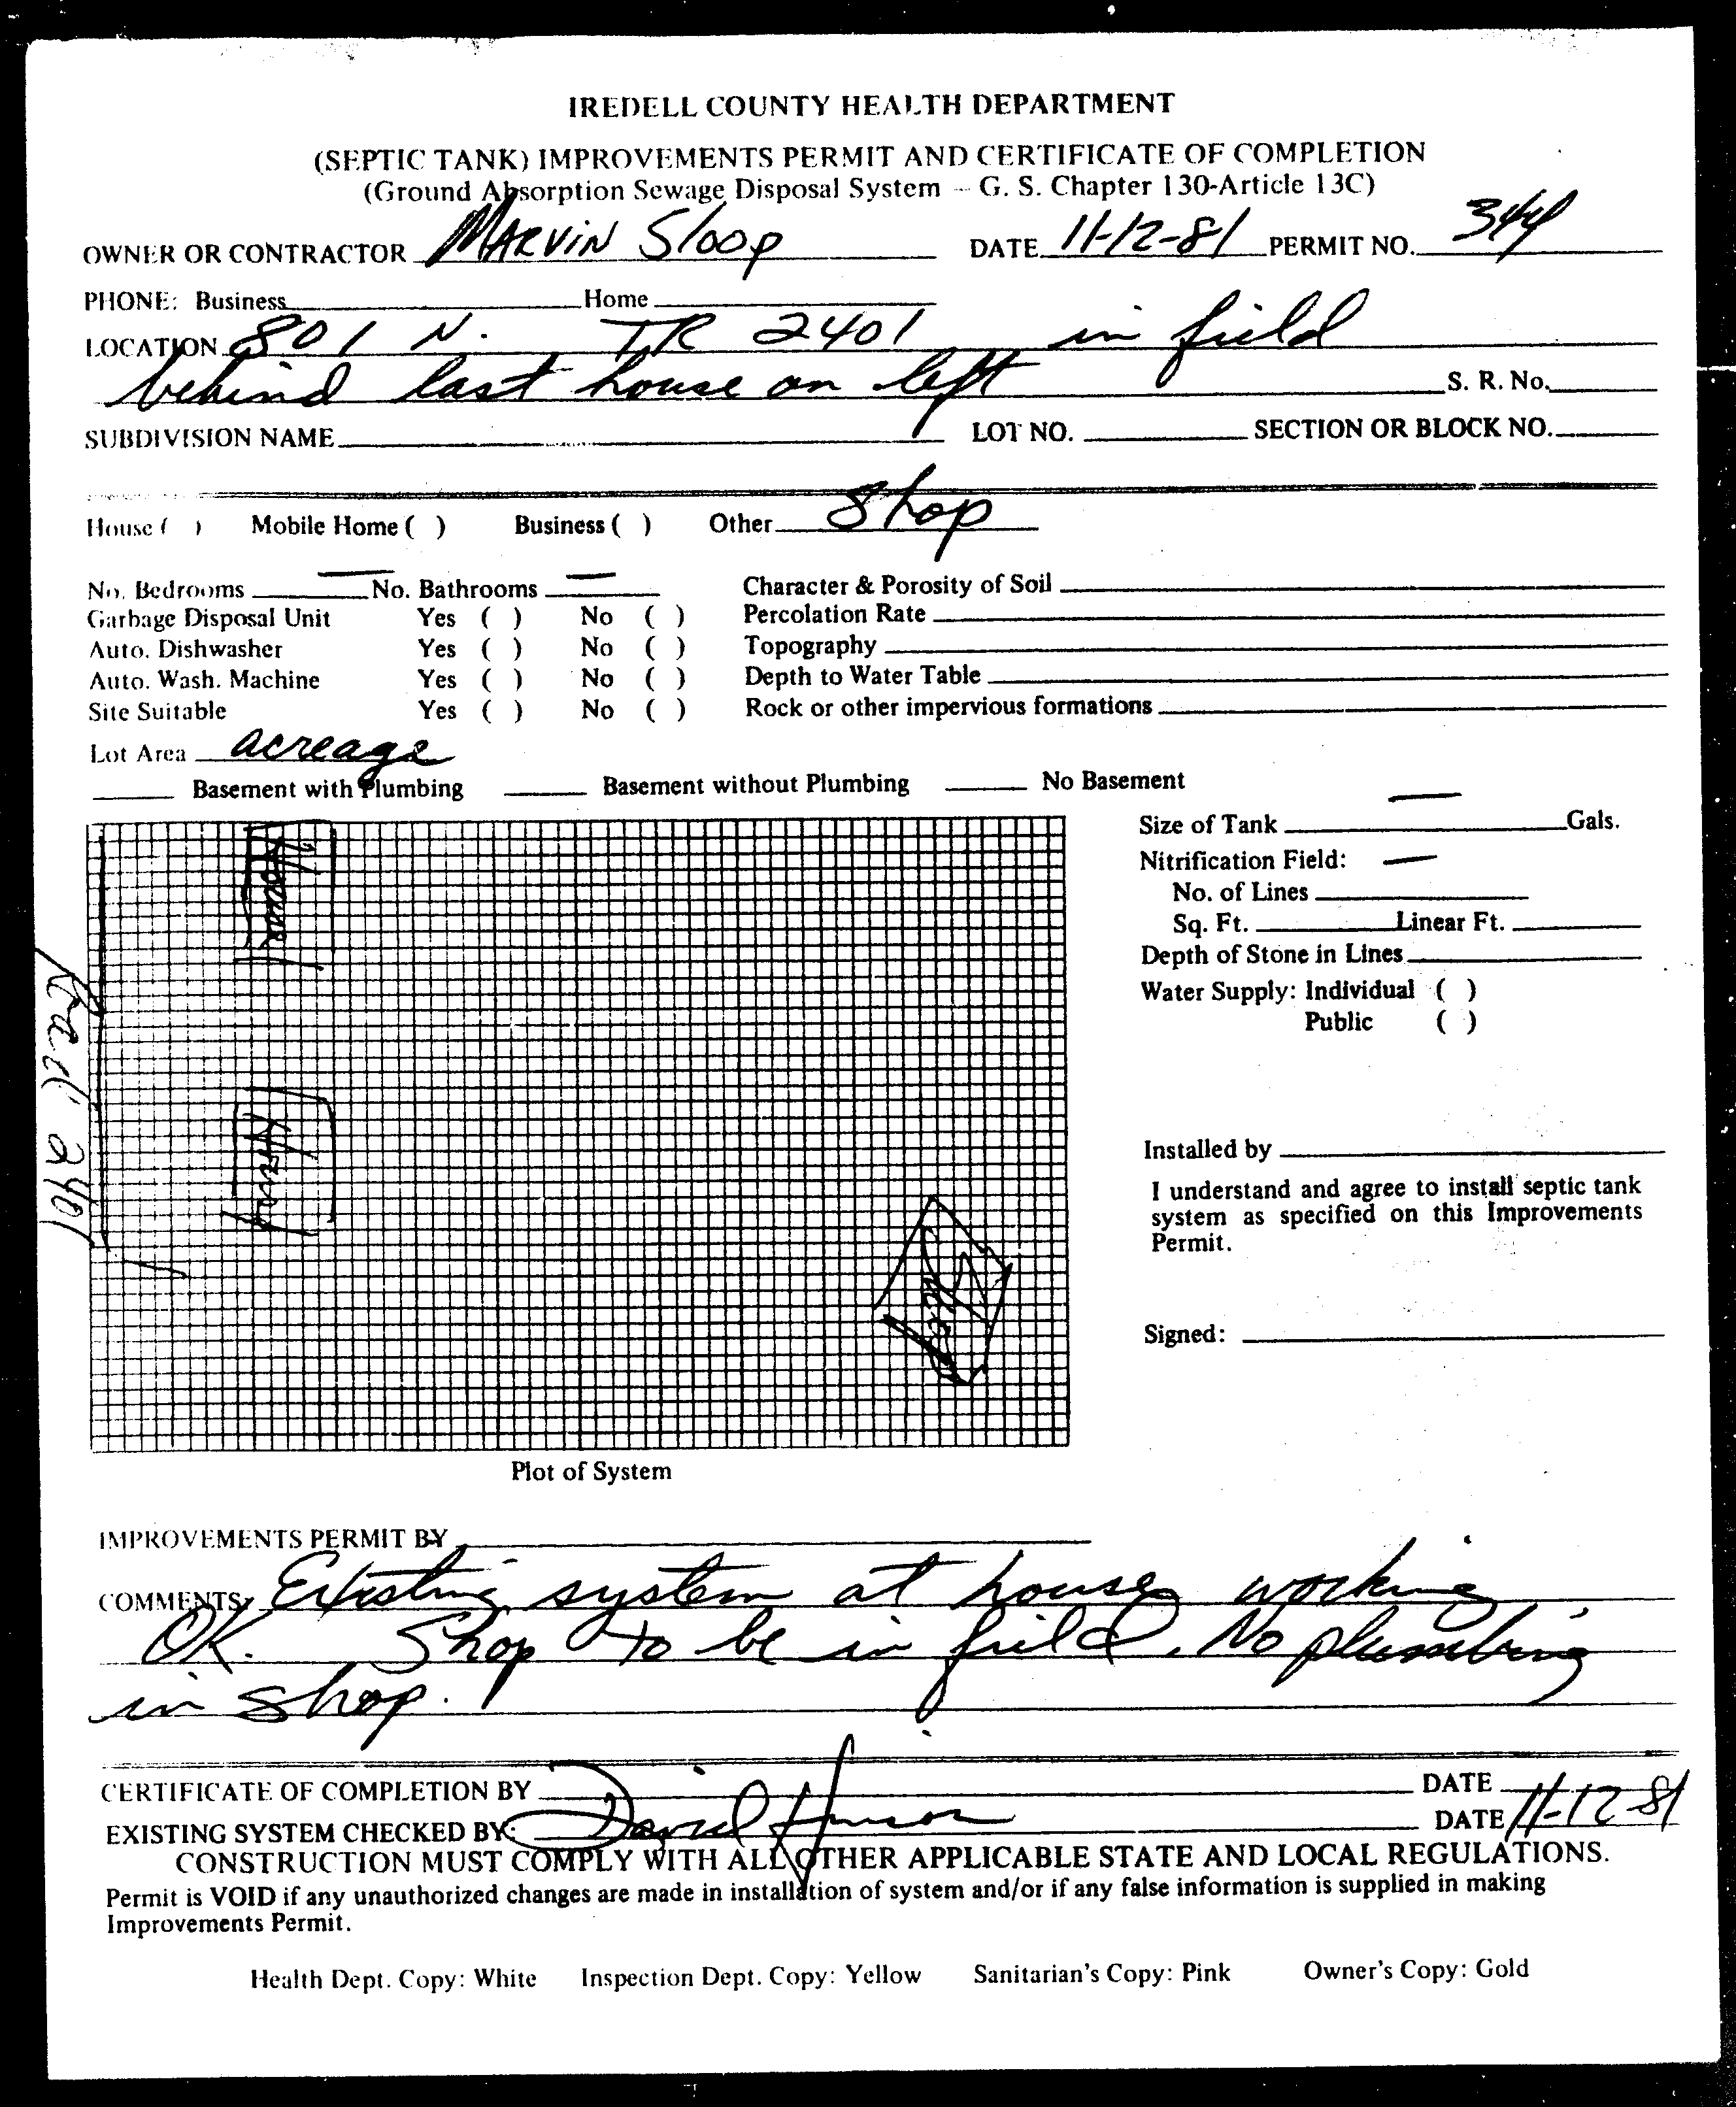 IREDELL COUNTY HEALTH DEPARTMENT
(SEPTIC TANK) IMPROVEMENTS PERMIT AND CERTIFICATE OF COMPLETION
(Ground Absorption Sewage Disposal System - G. S. Chapter 130-Article 13C)
OWNER OR CONTRACTOR MARVIN Sloop DATE 11-12-81 PERMIT NO. 344
PHONE: Business Home
LOCATION 801 N. TR 2401 in field
behind last house on left S. R. No.
SUBDIVISION NAME LOT NO. SECTION OR BLOCK NO.
House ( ) Mobile Home ( ) Business ( ) Other Shop
No. Bedrooms — No. Bathrooms — Character & Porosity of Soil
Garbage Disposal Unit Yes ( ) No ( ) Percolation Rate
Auto. Dishwasher Yes ( ) No ( ) Topography
Auto. Wash. Machine Yes ( ) No ( ) Depth to Water Table
Site Suitable Yes ( ) No ( ) Rock or other impervious formations
Lot Area acreage
Basement with Plumbing Basement without Plumbing No Basement
Size of Tank — Gals.
Nitrification Field: —
No. of Lines
Sq. Ft. Linear Ft.
Depth of Stone in Lines
Water Supply: Individual ( )
Public ( )
House
Road 2401
House
Shop
Installed by
I understand and agree to install septic tank
system as specified on this Improvements
Permit.
Signed:
Plot of System
IMPROVEMENTS PERMIT BY
COMMENTS: Existing system at house working
OK. Shop to be in field. No plumbing
in shop.
CERTIFICATE OF COMPLETION BY DATE
EXISTING SYSTEM CHECKED BY: David DATE 11-12-81
CONSTRUCTION MUST COMPLY WITH ALL OTHER APPLICABLE STATE AND LOCAL REGULATIONS.
Permit is VOID if any unauthorized changes are made in installation of system and/or if any false information is supplied in making
Improvements Permit.
Health Dept. Copy: White Inspection Dept. Copy: Yellow Sanitarian's Copy: Pink Owner's Copy: Gold